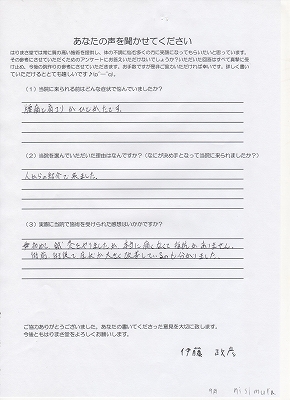 あなたの声を聞かせてください
はりまさ堂では常に質の高い施術を提供し、体の不調に悩む多くの方に笑顔になってもらいたいと思っています。
その参考にさせていただくためのアンケートにお答えいただけないでしょうか？いただいた回答はすべて真摯に受け止め、今後の院作りの参考にさせていただきます。お手数ですが是非ご協力いただければ幸いです。詳しく書いて
いただけるととても嬉しいです♪(o^―^o)。
（1）当院に来られる前はどんな症状で悩んでいましたか？
腰痛と肩こりがひどかったです。
（2）当院を選んでいただいた理由はなんですか？（なにが決め手となって当院に来られましたか？）
人からの紹介で来ました。
（3）実際に当院で施術を受けられた感想はいかがですか？
初めて 鍼 灸をやりましたが 本当に痛くなくて 抵抗がありません。
術前、術後で 症状が 大きく 改善しているのも分かりました。
ご協力ありがとうございました。あなたの書いてくださった意見を大切に致します。
今後ともはりまさ堂をよろしくお願いします。
伊藤 政彦